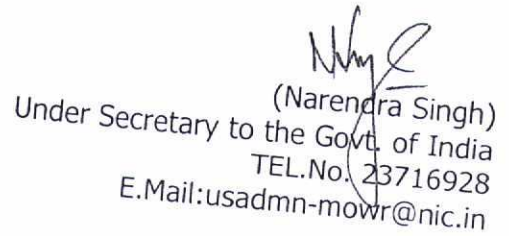 (Narendra Singh)
Under Secretary to the Govt. of India
TEL.No. 23716928
E.Mail:usadmn-mowr@nic.in